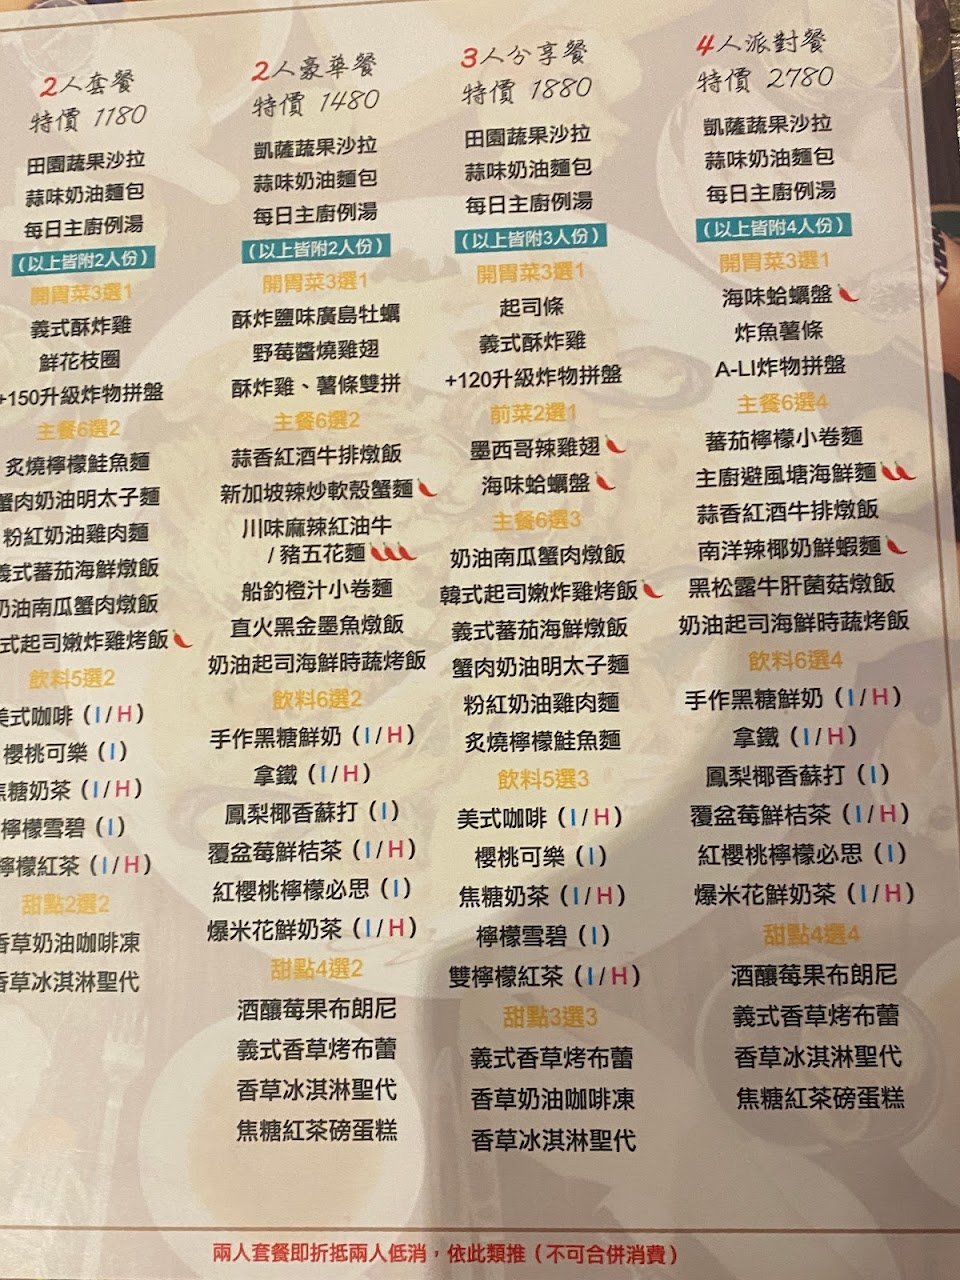 2人套餐
特價 1180
田園蔬果沙拉
蒜味奶油麵包
每日主廚例湯
(以上皆附2人份)
開胃菜3選1
義式酥炸雞
鮮花枝圈
+150升級炸物拼盤
主餐6選2
炙燒檸檬鮭魚麵
蟹肉奶油明太子麵
粉紅奶油雞肉麵
義式蕃茄海鮮燉飯
奶油南瓜蟹肉燉飯
式起司嫩炸雞烤飯
飲料5選2
美式咖啡(I/H)
櫻桃可樂(I)
焦糖奶茶(I/H)
檸檬雪碧(I)
檸檬紅茶(I/H)
甜點2選2
香草奶油咖啡凍
香草冰淇淋聖代
2人豪華餐
特價 1480
凱薩蔬果沙拉
蒜味奶油麵包
每日主廚例湯
(以上皆附2人份)
開胃菜3選1
酥炸鹽味廣島牡蠣
野莓醬燒雞翅
酥炸雞、薯條雙拼
主餐6選2
蒜香紅酒牛排燉飯
新加坡辣炒軟殼蟹麵
川味麻辣紅油牛
/豬五花麵
船釣橙汁小卷麵
直火黑金墨魚燉飯
奶油起司海鮮時蔬烤飯
飲料6選2
手作黑糖鮮奶(I/H)
拿鐵(I/H)
鳳梨椰香蘇打(I)
覆盆莓鮮桔茶(I/H)
紅櫻桃檸檬必思(I)
爆米花鮮奶茶(I/H)
甜點4選2
酒釀莓果布朗尼
義式香草烤布蕾
香草冰淇淋聖代
焦糖紅茶磅蛋糕
3人分享餐
特價 1880
田園蔬果沙拉
蒜味奶油麵包
每日主廚例湯
(以上皆附3人份)
開胃菜3選1
起司條
義式酥炸雞
+120升級炸物拼盤
前菜2選1
墨西哥辣雞翅
海味蛤蠣盤
主餐6選3
奶油南瓜蟹肉燉飯
韓式起司嫩炸雞烤飯
義式蕃茄海鮮燉飯
蟹肉奶油明太子麵
粉紅奶油雞肉麵
炙燒檸檬鮭魚麵
飲料5選3
美式咖啡(I/H)
櫻桃可樂(I)
焦糖奶茶(I/H)
檸檬雪碧(I)
雙檸檬紅茶(I/H)
甜點3選3
義式香草烤布蕾
香草奶油咖啡凍
香草冰淇淋聖代
4人派對餐
特價 2780
凱薩蔬果沙拉
蒜味奶油麵包
每日主廚例湯
(以上皆附4人份)
開胃菜3選1
海味蛤蠣盤
炸魚薯條
A-LI炸物拼盤
主餐6選4
蕃茄檸檬小卷麵
主廚避風塘海鮮麵
蒜香紅酒牛排燉飯
南洋辣椰奶鮮蝦麵
黑松露牛肝菌菇燉飯
奶油起司海鮮時蔬烤飯
飲料6選4
手作黑糖鮮奶(I/H)
拿鐵(I/H)
鳳梨椰香蘇打(I)
覆盆莓鮮桔茶(I/H)
紅櫻桃檸檬必思(I)
爆米花鮮奶茶(I/H)
甜點4選4
酒釀莓果布朗尼
義式香草烤布蕾
香草冰淇淋聖代
焦糖紅茶磅蛋糕
兩人套餐即折抵兩人低消，依此類推(不可合併消費)